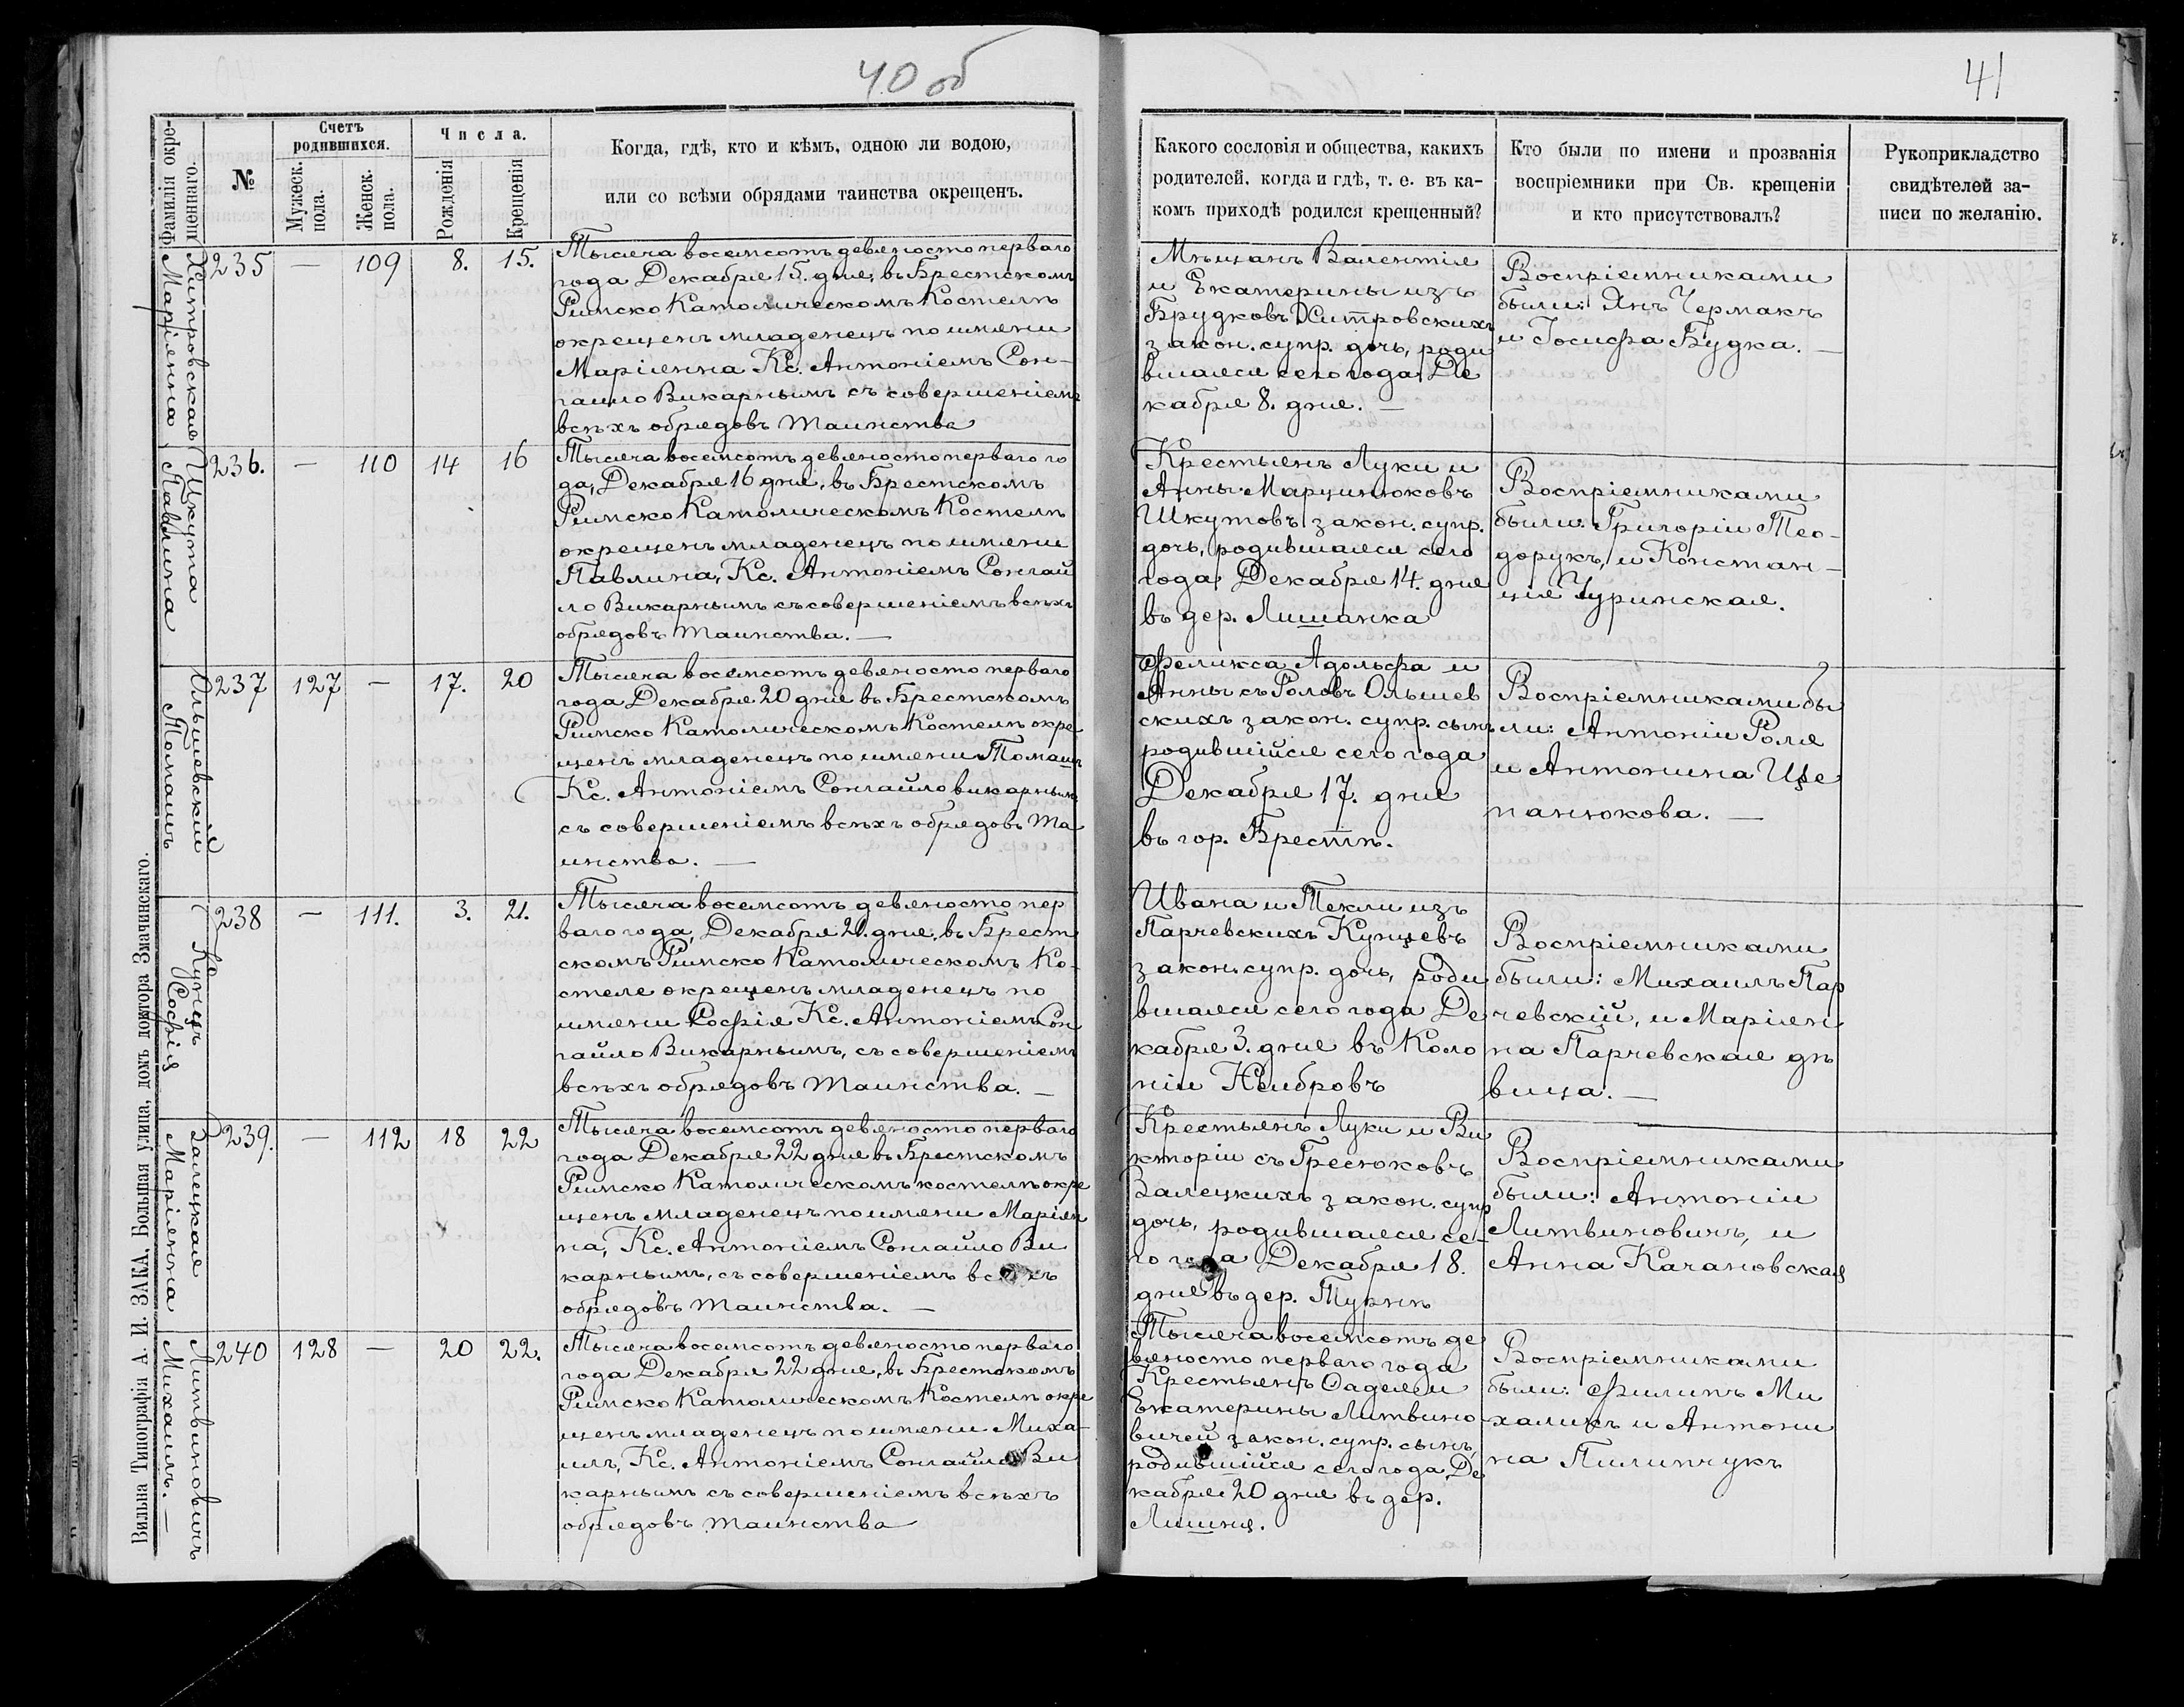 40 об
41
Фамилія окре-
щеннаго.
№
Счетъ
родившихся.
Мужеск.
пола.
Женск.
пола.
Числа.
Рожденія
Крещенія
Когда, гдѣ, кто и кѣмъ, одною ли водою,
или со всѣми обрядами таинства окрещенъ.
Какого сословія и общества, какихъ
родителей, когда и гдѣ, т. е. въ ка-
комъ приходѣ родился крещенный?
Кто были по имени и прозванія
воспріемники при Св. крещеніи
и кто присутствовалъ?
Рукоприкладство
свидѣтелей за-
писи по желанію.
Хитровская
Маріянна
235 — 109 8. 15.
Тысяча восемсотъ девяносто перваго
года Декабря 15. дня, въ Брестскомъ
Римско Католическомъ Костелѣ
окрещенъ младенецъ по имени
Маріянна Кс. Антоніемъ Сон-
гайло Викарнымъ съ совершеніемъ
всѣхъ обрядовъ таинства
Мѣщанъ Валентія
и Екатерины изъ
Брудковъ Хитровскихъ
закон. супр. дочь, роди
вшаяся сего года Де
кабря 8. дня. —
Воспріемниками
были: Янъ Чермакъ
и Іосифа Будка. —
Шкута
Павлина
236. — 110 14 16
Тысяча восемсотъ девяносто перваго го
да, Декабря 16 дня, въ Брестскомъ
Римско Католическомъ Костелѣ
окрещенъ младенецъ по имени
Павлина, Кс. Антоніемъ Сонгай
ло Викарнымъ съ совершеніемъ всѣхъ
обрядовъ таинства. —
Крестьянъ Луки и
Анны Марцинюковъ
Шкутовъ закон. супр.
дочь, родившаяся сего
года Декабря 14. дня
въ дер. Лишанка
Воспріемниками
были: Григоріи Тео-
дорукъ, и Констан-
ція Чуринская.
Ольшевскій
Томашъ
237 127 — 17. 20
Тысяча восемсотъ девяносто перваго
года Декабря 20 дня въ Брестскомъ
Римско Католическомъ Костелѣ окре
щенъ младенецъ по имени Томашъ
Кс. Антоніемъ Сонгайло викарнымъ
съ совершеніемъ всѣхъ обрядовъ та
инства. —
Феликса Адольфа и
Анны съ Ролевъ Ольшев
скихъ закон. супр. сынъ
родившійся сего года
Декабря 17. дня
въ гор. Брестѣ.
Воспріемниками бы
ли: Антоніи Роля
и Антонина Ще
панюкова. —
Кунцъ
Софія
238 — 111. 3. 21.
Тысяча восемсотъ девяносто пер
ваго года, Декабря 21. дня, въ Брест
скомъ Римско Католическомъ Ко-
стеле окрещенъ младенецъ по
имени Софія Кс. Антоніемъ Сон
гайло Викарнымъ, съ совершеніемъ
всѣхъ обрядовъ таинства. —
Ивана и Текли изъ
Парчевскихъ Кунцевъ
закон. супр. дочь, роди
вшаяся сего года Де
кабря 3. дня въ Коло
ніи Нейбровъ
Воспріемниками
были: Михаилъ Пар
чевскій, и Маріян
на Парчевская дѣ
вица. —
Залецкая
Маріянна
239. — 112 18 22
Тысяча восемсотъ девяносто перваго
года Декабря 22 дня въ Брестскомъ
Римско Католическомъ костелѣ окре
щенъ младенецъ по имени Маріян
на, Кс. Антоніемъ Сонгайло Ви
карнымъ, съ совершеніемъ всѣхъ
обрядовъ таинства. —
Крестьянъ Луки и Ви
кторіи съ Гресюковъ
Залецкихъ закон. супр
дочь, родившаяся се-
го года Декабря 18.
дня въ дер. Турнѣ
Воспріемниками
были: Антоніи
Литвиновичъ, и
Анна Качановская
Литвиновичъ
Михаилъ. —
240 128 — 20 22.
Тысяча восемсотъ девяносто перваго
года Декабря 22 дня, въ Брестскомъ
Римско Католическомъ Костелѣ окре
щенъ младенецъ по имени Миха-
илъ, Кс. Антоніемъ Сонгайло Ви
карнымъ съ совершеніемъ всѣхъ
обрядовъ таинства
Тысяча восемсотъ де
вяносто перваго года
Крестьянъ Фадея и
Екатерины Литвино
вичей закон. супр. сынъ
родившійся сего года Де
кабря 20 дня въ дер.
Лишня.
Воспріемниками
были: Филипъ Ми
халикъ и Антони
на Пилипчукъ
Вильна Типографія А. И. ЗАКА, Большая улица, домъ доктора Змачинскаго.